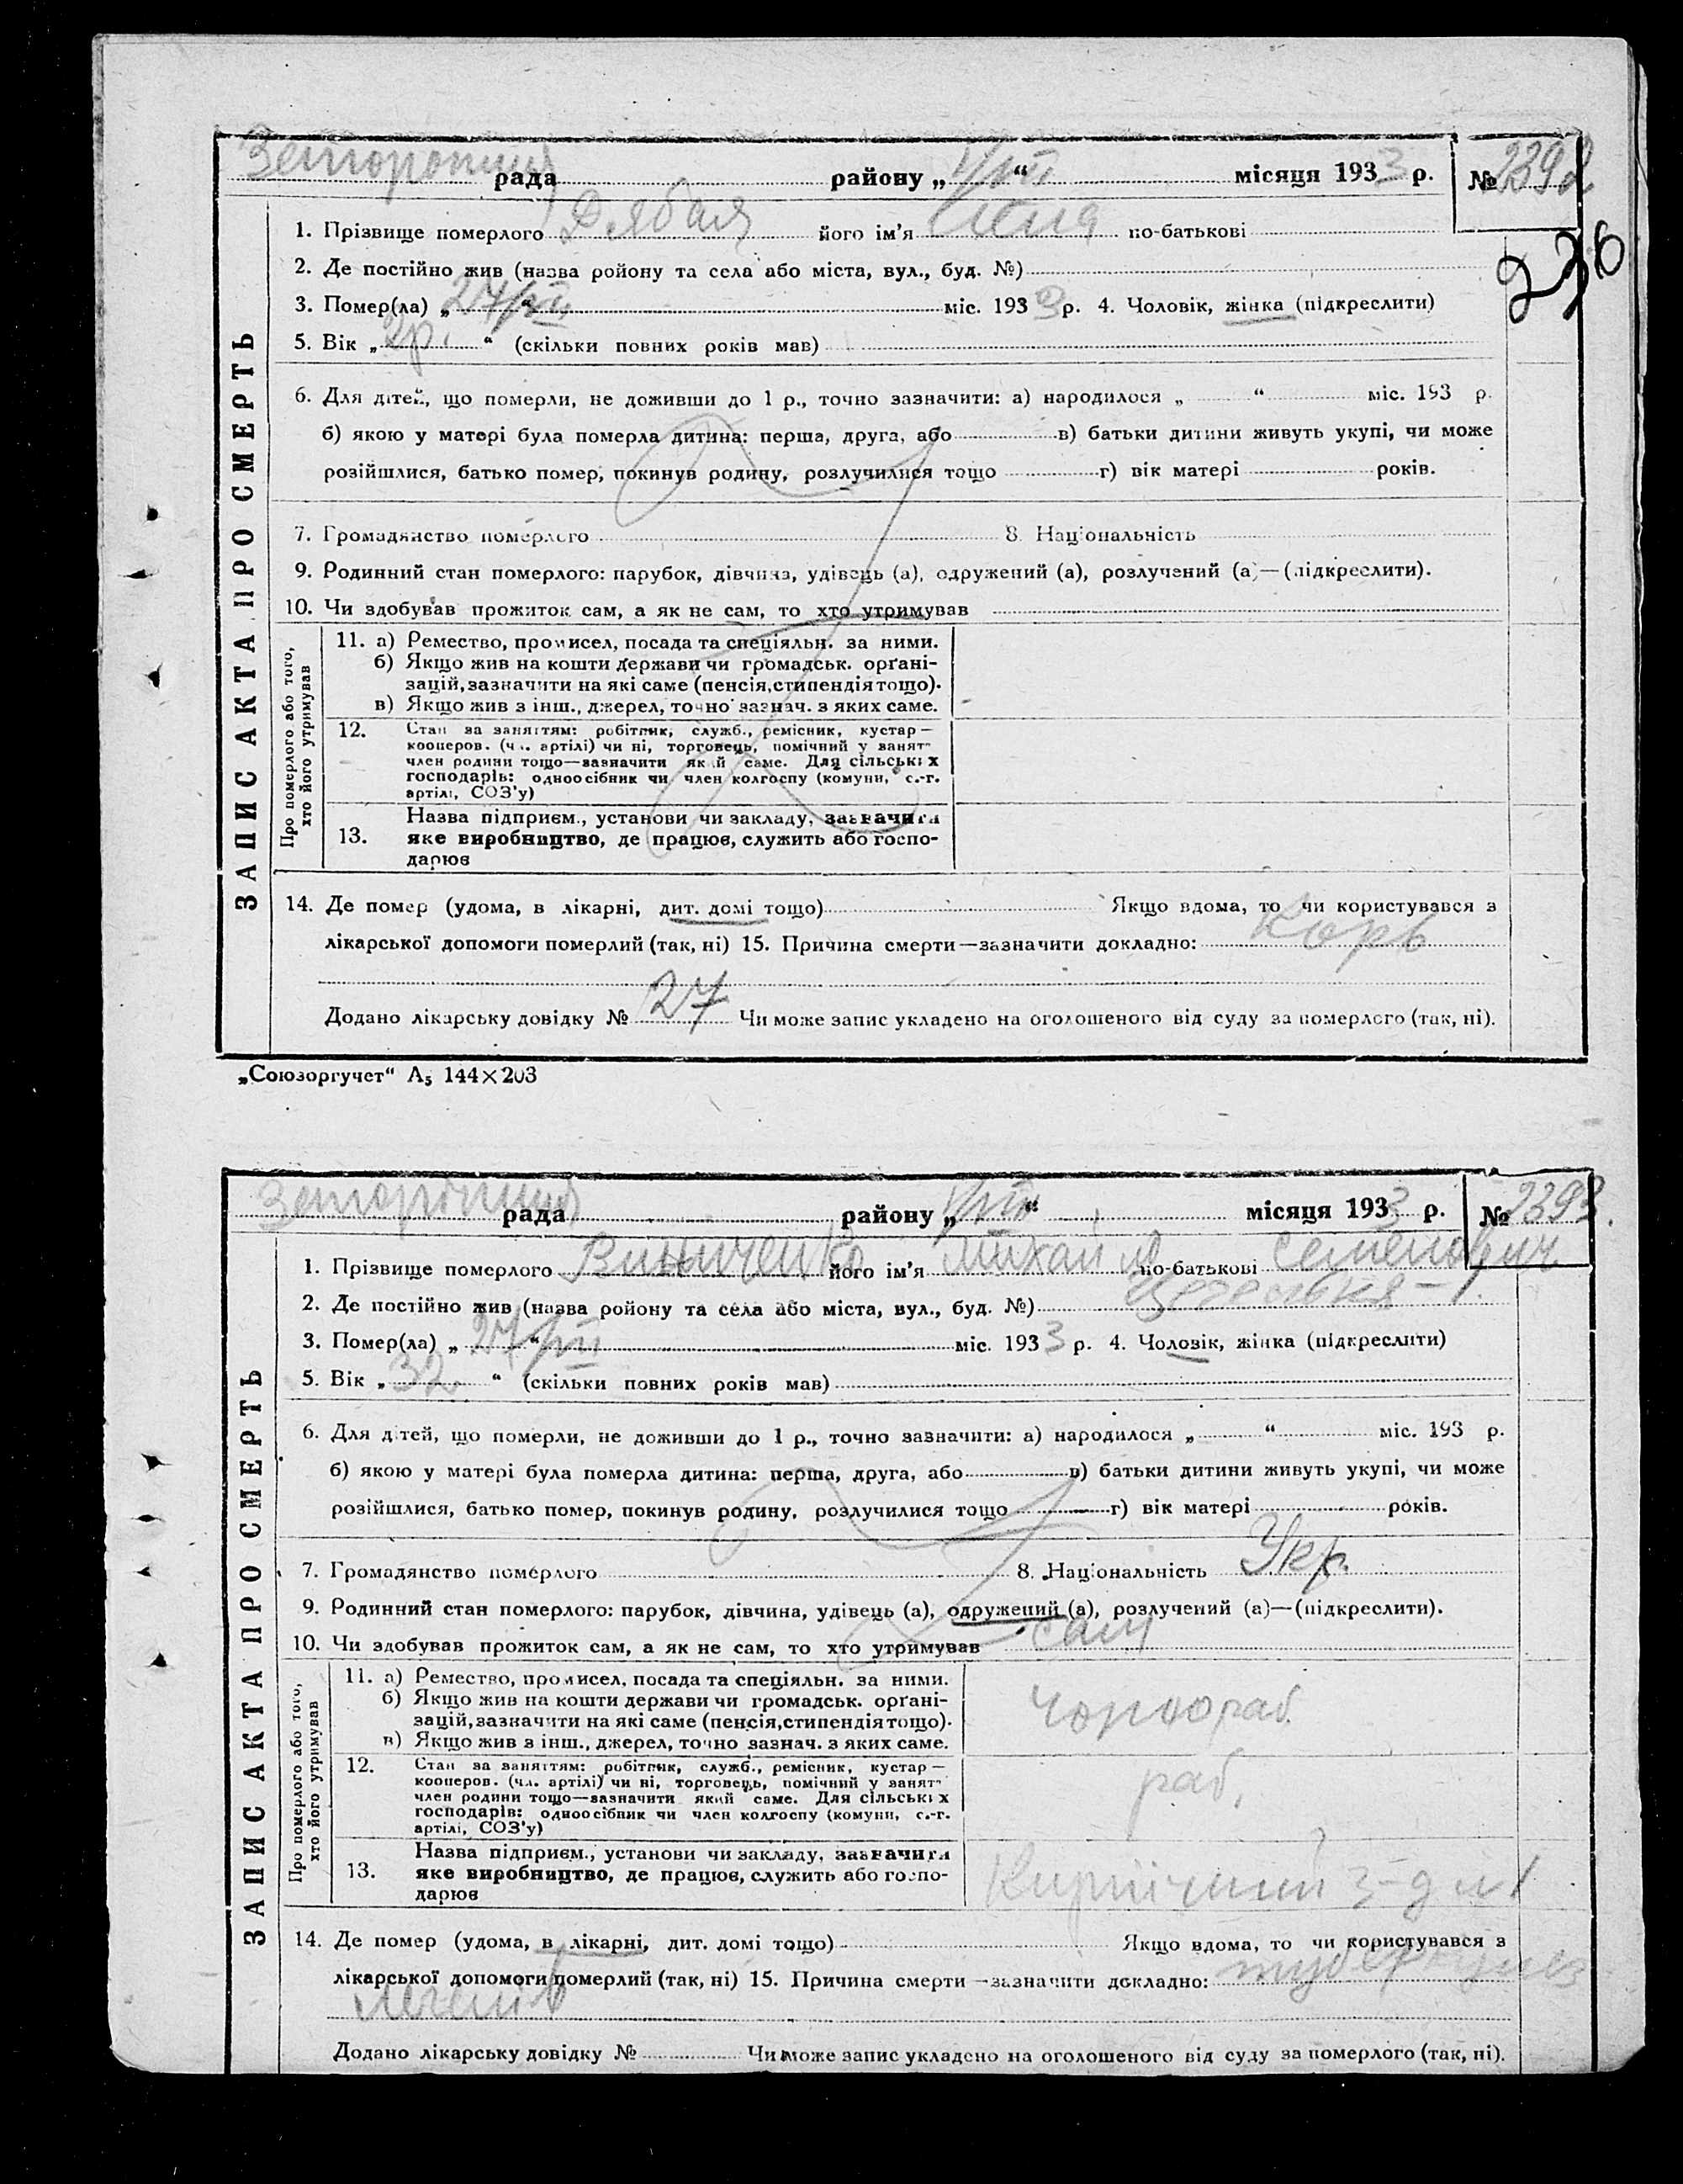 рада району „ “ місяця 1933 р. № 2392
236
1. Прізвище померлого його ім’я по-батькові
2. Де постійно жив (назва ройону та села або міста, вул., буд. №)
3. Помер(ла) „ 27/VII “ міс. 1933 р. 4. Чоловік, жінка (підкреслити)
5. Вік „ 2р. “ (скільки повних років мав)
6. Для дітей, що померли, не доживши до 1 р., точно зазначити: а) народилося „ “ міс. 193 р.
б) якою у матері була померла дитина: перша, друга, або в) батьки дитини живуть укупі, чи може
розійшлися, батько помер, покинув родину, розлучилися тощо г) вік матері років.
7. Громадянство померлого 8. Національність
9. Родинний стан померлого: парубок, дівчина, удівець (а), одружений (а), розлучений (а)—(підкреслити).
10. Чи здобував прожиток сам, а як не сам, то хто утримував
ЗАПИС АКТА ПРО СМЕРТЬ
Про померлого або того, хто його утримував
11. а) Ремество, промисел, посада та спеціяльн. за ними.
б) Якщо жив на кошти держави чи громадськ. орґані-
зацій, зазначити на які саме (пенсія, стипендія тощо).
в) Якщо жив з інш., джерел, точно зазнач. з яких саме.
12. Стан за заняттям: робітник, служб., ремісник, кустар—
кооперов. (чл. артілі) чи ні, торговець, помічний у занят
член родини тощо—зазначити який саме. Для сільських
господарів: одноосібник чи член колгоспу (комуни, с.-г.
артілі, СОЗ’у)
13. Назва підприєм., установи чи закладу, зазначити
яке виробництво, де працює, служить або госпо-
дарює
14. Де помер (удома, в лікарні, дит. домі тощо) Якщо вдома, то чи користувався з
лікарської допомоги померлий (так, ні) 15. Причина смерти—зазначити докладно: Корь
Додано лікарську довідку № 27 Чи може запис укладено на оголошеного від суду за померлого (так, ні).
„Союзоргучет“ А5 144×203
рада району „ “ місяця 1933 р. № 2393.
1. Прізвище померлого Винниченко його ім’я Михайло по-батькові Семенович
2. Де постійно жив (назва ройону та села або міста, вул., буд. №)
3. Помер(ла) „ 27/VII “ міс. 1933 р. 4. Чоловік, жінка (підкреслити)
5. Вік „ 32 “ (скільки повних років мав)
6. Для дітей, що померли, не доживши до 1 р., точно зазначити: а) народилося „ “ міс. 193 р.
б) якою у матері була померла дитина: перша, друга, або в) батьки дитини живуть укупі, чи може
розійшлися, батько помер, покинув родину, розлучилися тощо г) вік матері років.
7. Громадянство померлого 8. Національність Укр.
9. Родинний стан померлого: парубок, дівчина, удівець (а), одружений (а), розлучений (а)—(підкреслити).
10. Чи здобував прожиток сам, а як не сам, то хто утримував сам
ЗАПИС АКТА ПРО СМЕРТЬ
Про померлого або того, хто його утримував
11. а) Ремество, промисел, посада та спеціяльн. за ними.
б) Якщо жив на кошти держави чи громадськ. орґані-
зацій, зазначити на які саме (пенсія, стипендія тощо).
в) Якщо жив з інш., джерел, точно зазнач. з яких саме.
чорнораб.
12. Стан за заняттям: робітник, служб., ремісник, кустар—
кооперов. (чл. артілі) чи ні, торговець, помічний у занят
член родини тощо—зазначити який саме. Для сільських
господарів: одноосібник чи член колгоспу (комуни, с.-г.
артілі, СОЗ’у)
раб.
13. Назва підприєм., установи чи закладу, зазначити
яке виробництво, де працює, служить або госпо-
дарює
Кирпічний з-д №1
14. Де помер (удома, в лікарні, дит. домі тощо) Якщо вдома, то чи користувався з
лікарської допомоги померлий (так, ні) 15. Причина смерти—зазначити докладно: туберкульоз
легенів
Додано лікарську довідку № Чи може запис укладено на оголошеного від суду за померлого (так, ні).